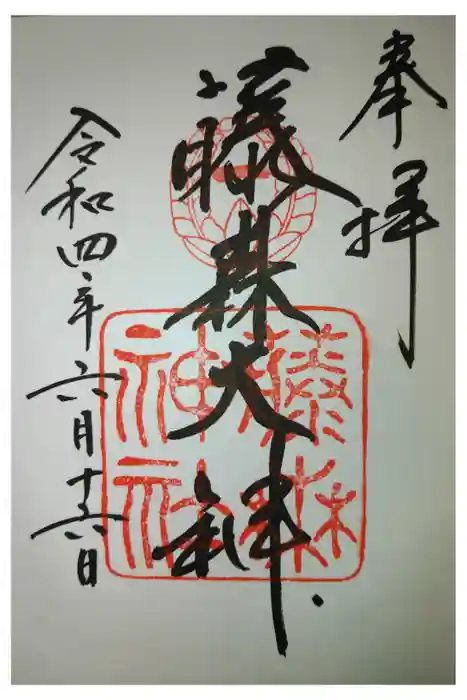 奉拝
藤森大神
藤森
神社
令和四年六月十六日